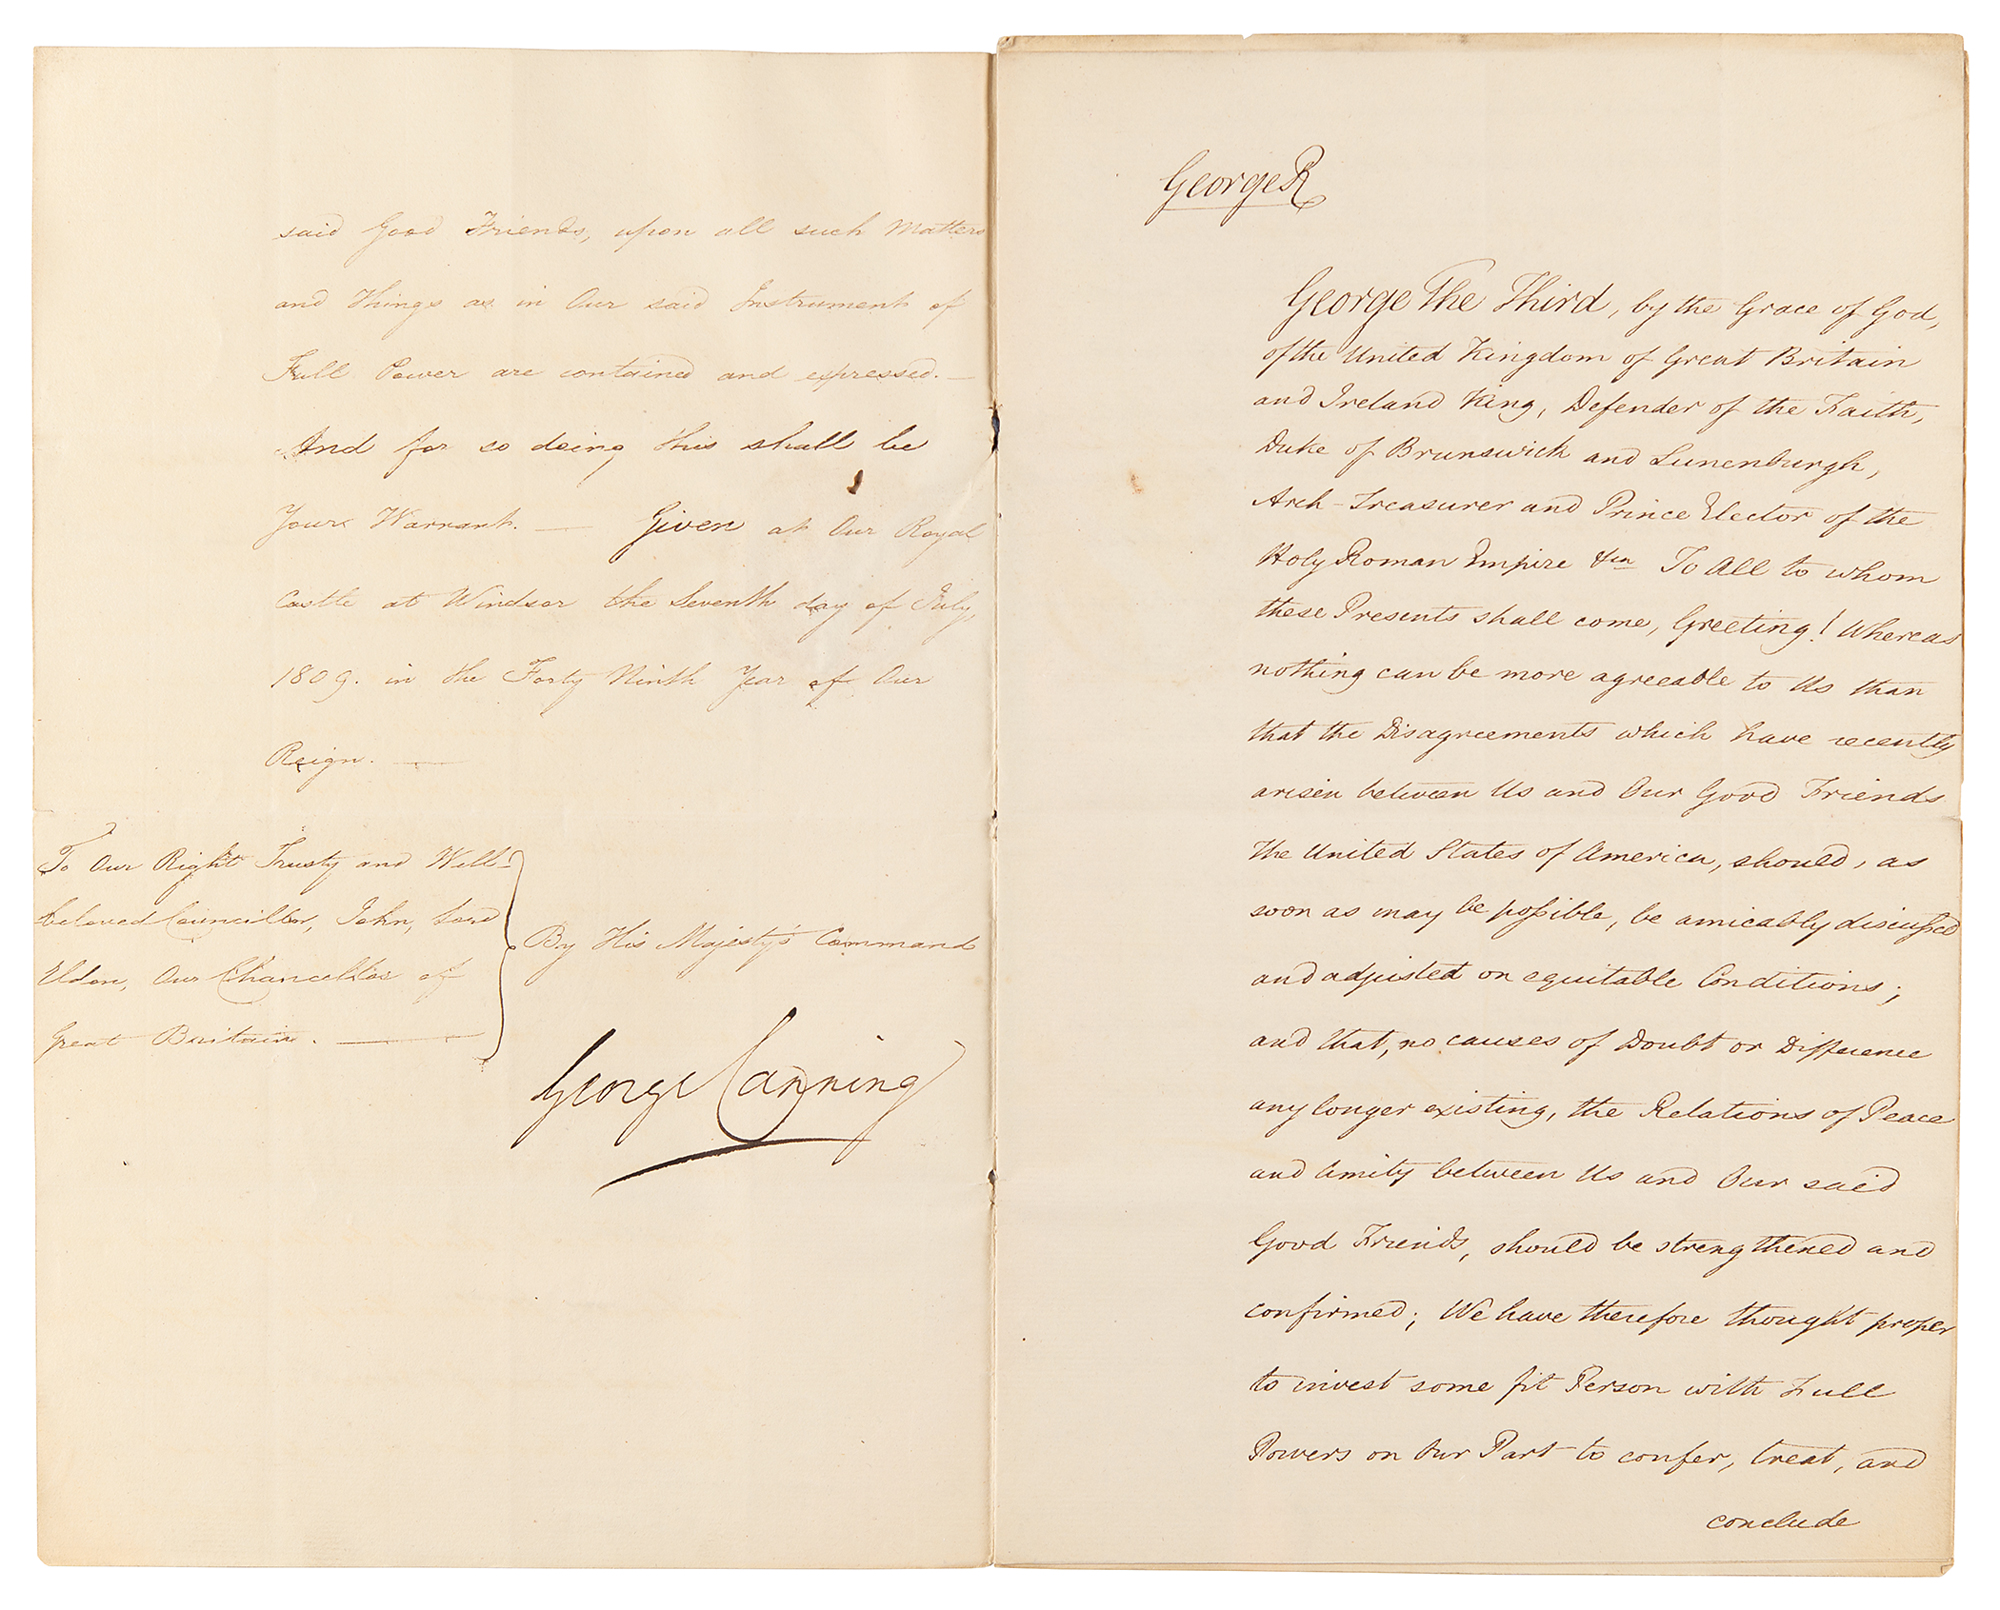 said Good Friends, upon all such Matters
and Things as in Our said Instrument of
Full Power are contained and expressed. —
And for so doing this shall be
Your Warrant. — Given at Our Royal
Castle at Windsor the Seventh day of July,
1809. in the Forty Ninth Year of Our
Reign. —
To Our Right Trusty and Well-
beloved Councillor, John, Lord
Eldon, Our Chancellor of
Great Britain. —
By His Majesty's Command
George Canning
George R
George The Third, by the Grace of God,
of the United Kingdom of Great Britain
and Ireland King, Defender of the Faith,
Duke of Brunswick and Lunenburgh,
Arch-Treasurer and Prince Elector of the
Holy Roman Empire &ca To All to whom
these Presents shall come, Greeting! Whereas
nothing can be more agreeable to Us than
that the Disagreements which have recently
arisen between Us and Our Good Friends
The United States of America, should, as
soon as may be possible, be amicably discussed
and adjusted on equitable Conditions;
and that, no causes of Doubt or Difference
any longer existing, the Relations of Peace
and Amity between Us and Our said
Good Friends, should be strengthened and
confirmed; We have therefore thought proper
to invest some fit Person with Full
Powers on Our Part to confer, treat, and
conclude